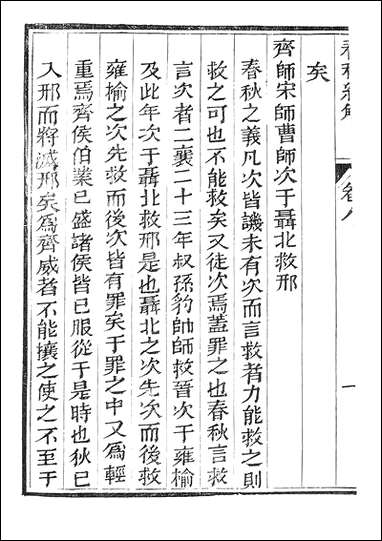 春秋經解
卷八
一
矣
齊師宋師曹師次于聶北救邢
春秋之義凡次皆譏未有次而言救者力能救之則
救之可也不能救矣又徒次焉蓋罪之也春秋言救
言次者二襄二十三年叔孫豹帥師救晉次于雍榆
及此年次于聶北救邢是也聶北之次先次而後救
雍榆之次先救而後次皆有罪矣于罪之中又爲輕
重焉齊侯伯業已盛諸侯皆已服從于是時也狄已
入邢而將滅邢矣爲齊威者不能攘之使之不至于